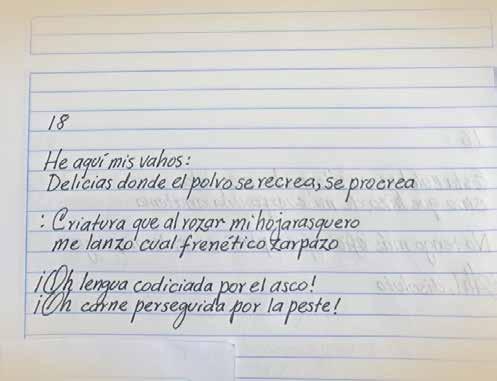 18
He aquí mis vahos:
Delicias donde el polvo se recrea, se procrea
: Criatura que al rozar mi hojarasquero
me lanzó cual frenético zarpazo
¡Oh lengua codiciada por el asco!
¡Oh carne perseguida por la peste!